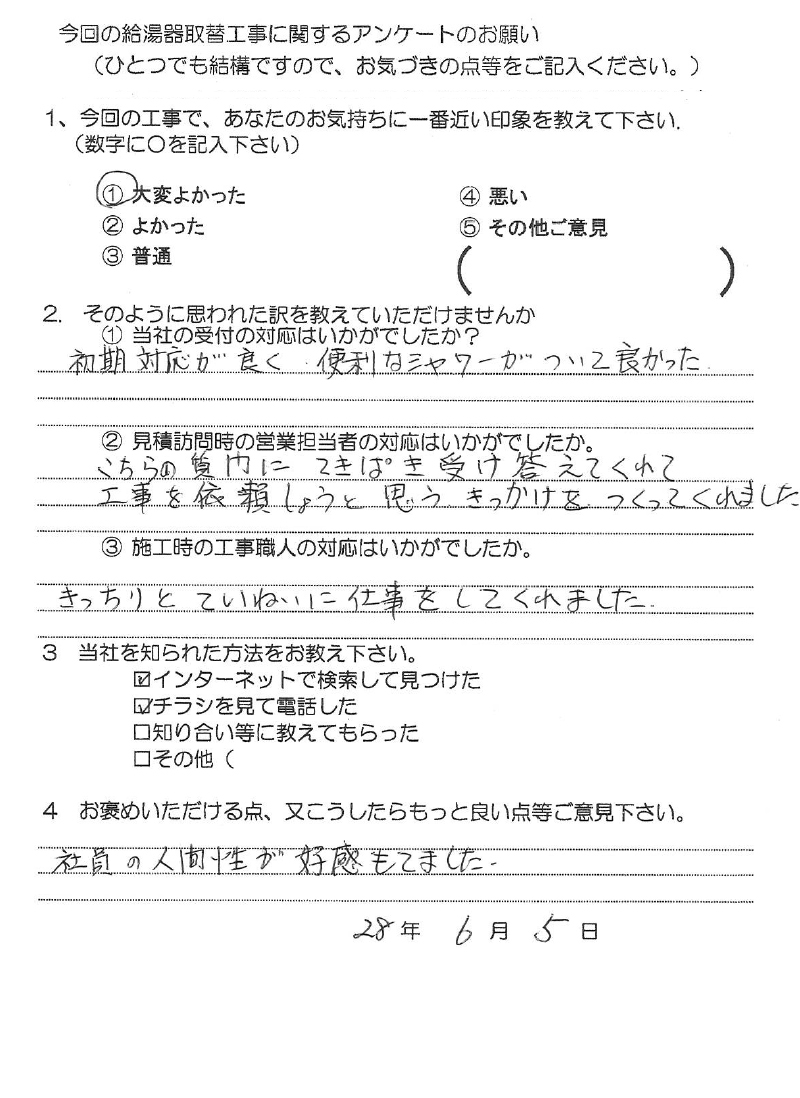 今回の給湯器取替工事に関するアンケートのお願い
（ひとつでも結構ですので、お気づきの点等をご記入ください。）
1、今回の工事で、あなたのお気持ちに一番近い印象を教えて下さい.
（数字に〇を記入下さい）
① 大変よかった
② よかった
③ 普通
④ 悪い
⑤ その他ご意見
（　　　　　　　　　　）
2. そのように思われた訳を教えていただけませんか
① 当社の受付の対応はいかがでしたか？
初期対応が良く、便利なシャワーがついて良かった.
② 見積訪問時の営業担当者の対応はいかがでしたか。
こちらの質問に てきぱき受け答えてくれて
工事を依頼しようと思うきっかけをつくってくれました
③ 施工時の工事職人の対応はいかがでしたか。
きっちりとていねいに仕事をしてくれました.
3 当社を知られた方法をお教え下さい。
☑インターネットで検索して見つけた
☑チラシを見て電話した
□知り合い等に教えてもらった
□その他（
4 お褒めいただける点、又こうしたらもっと良い点等ご意見下さい。
社員の人間性が好感もてました.
28年 6月 5日